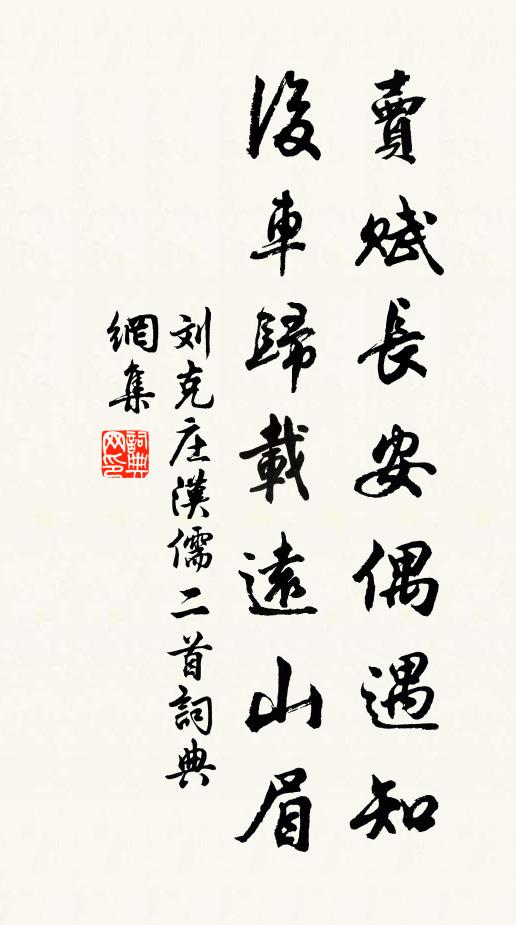 賣賦長安偶遇知
後車歸載遠山眉
刘克庄漢儒二首詞典
網集
詞典
网印